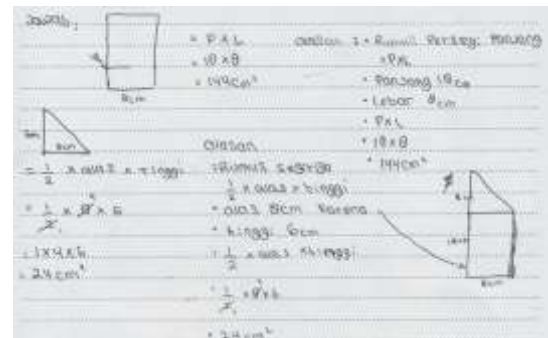 Jawab:
8cm
= P x L
= 18 x 8
= 144 cm²
alasan : • Rumus Persegi Panjang
= P x L
• Panjang 18 cm
• Lebar 8 cm
• P x L
• 18 x 8
• 144 cm²
8cm
= 1/2 x alas x tinggi
= 1/2 x 8 x 6
= 1 x 4 x 6
= 24 cm²
alasan
: Rumus segitiga
1/2 x alas x tinggi
• alas 8cm karena
• tinggi 6cm
• 1/2 x alas x tinggi
• 1/2 x 8 x 6
• 24 cm²
8cm